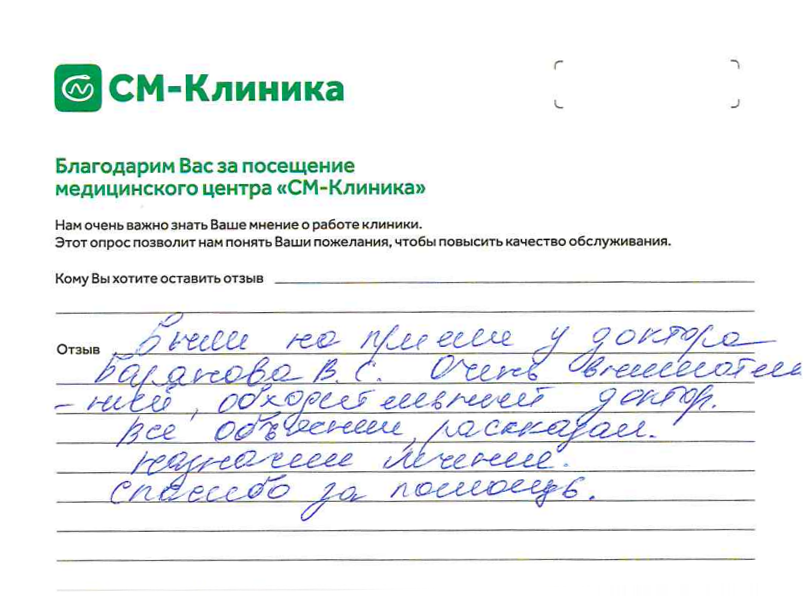 СМ-Клиника
Благодарим Вас за посещение
медицинского центра «СМ-Клиника»
Нам очень важно знать Ваше мнение о работе клиники.
Этот опрос позволит нам понять Ваши пожелания, чтобы повысить качество обслуживания.
Кому Вы хотите оставить отзыв
Отзыв Были на приеме у доктора
Баранова В.С. Очень вниматель
-ный, обходительный доктор.
Все объяснил, рассказал.
назначил лечение.
Спасибо за помощь.